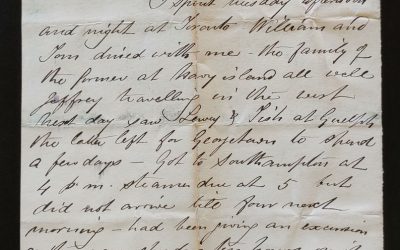 I spent Tuesday afternoon
and night at Toronto William and
Tom dined with me - the family of
the former at Navy island all well
Jeffrey travelling in the west
Next day saw Lowry & Pish at Guelph
the latter left for Georgetown to spend
a few days - Got to Southampton at
4 p.m. steamer due at 5 but
did not arrive till four next
morning - had been giving an excursion